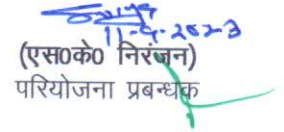 11-9-2023
(एस०के० निरंजन)
परियोजना प्रबन्धक